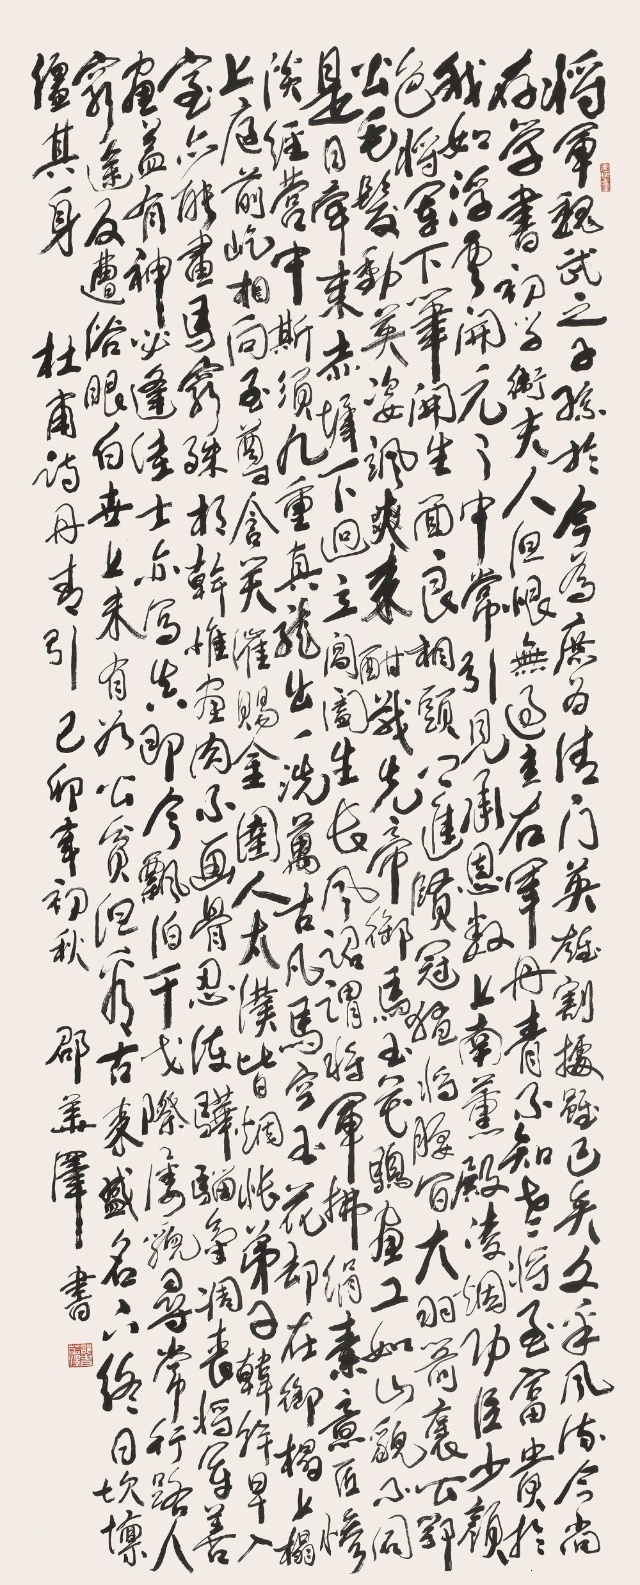 将軍魏武之子孫於今為庶為清門英雄割據雖已矣文采風流今尚
存学書初学衛夫人但恨無過王右軍丹青不知老将至富貴於
我如浮雲開元之中常引見承恩数上南薰殿凌烟功臣少顔
色将軍下筆開生面良相頭上進賢冠猛将腰間大羽箭褒公鄂
公毛髮動英姿颯爽来酣戰先帝御馬玉花驄畫工如山貌不同
是日牽来赤墀下迥立閶闔生長風詔謂将軍拂絹素意匠惨
淡經營中斯須九重真龍出一洗萬古凡馬空玉花却在御榻上榻
上庭前屹相向至尊含笑催賜金圉人太僕皆惆悵弟子韓幹早入
室亦能畫馬窮殊相幹惟畫肉不画骨忍使驊騮氣凋喪将軍善
畫蓋有神必逢佳士亦寫真即今飄泊干戈際屢貌尋常行路人
窮途反遭俗眼白世上未有如公貧但看古来盛名下終日坎壈
纏其身 杜甫詩丹青引 己卯年初秋 邵華澤書